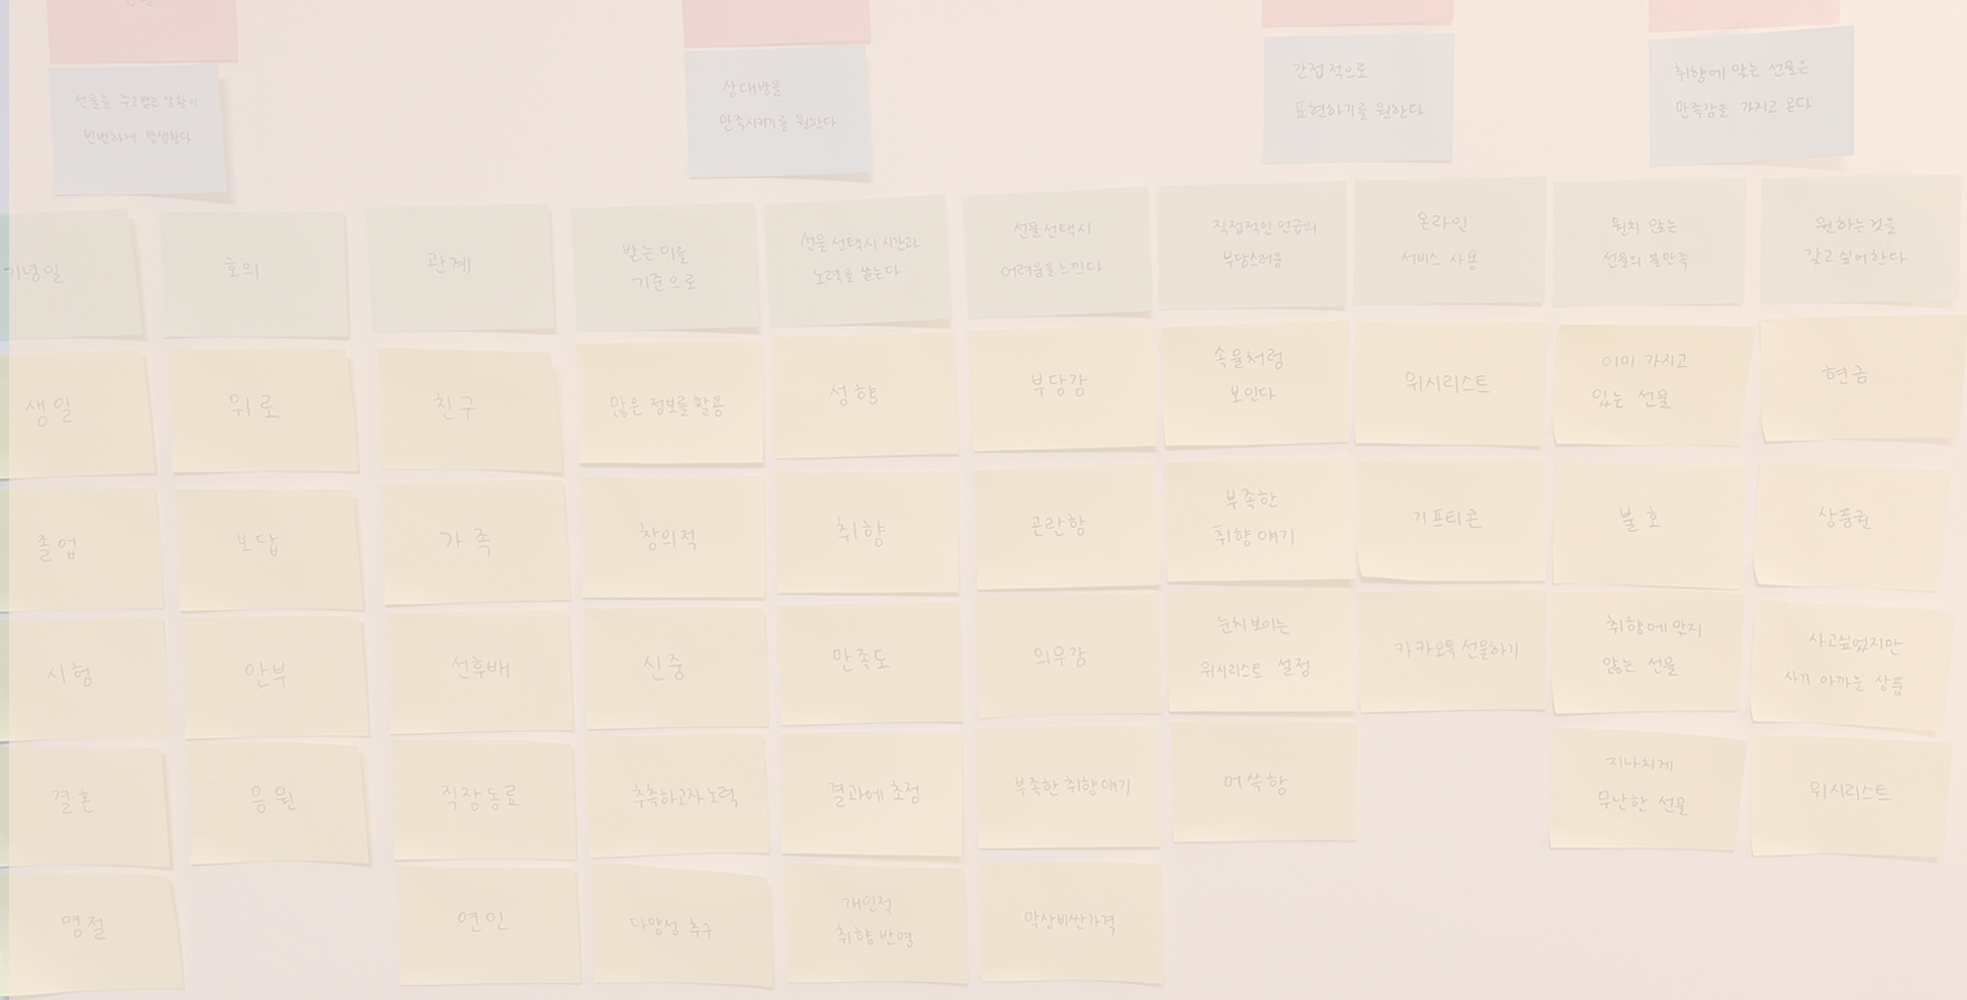 선물을 주고받는 상황이
빈번하게 발생한다
상대방을
만족시키기를 원한다
간접적으로
표현하기를 원한다
취향에 맞는 선물은
만족감을 가지고 온다
기념일
호의
관계
받는 이를
기준으로
선물 선택시 시간과
노력을 쏟는다
선물 선택시
어려움을 느낀다
직접적인 언급의
부담스러움
온라인
서비스 사용
원치 않는
선물의 불만족
원하는 것을
갖고 싶어한다
생일
위로
친구
많은 정보를 활용
성향
부담감
속물처럼
보인다
위시리스트
이미 가지고
있는 선물
현금
졸업
보답
가족
창의적
취향
곤란함
부족한
취향 얘기
기프티콘
불호
상품권
시험
안부
선후배
신중
만족도
의무감
눈치 보이는
위시리스트 설정
카카오톡 선물하기
취향에 맞지
않는 선물
사고싶었지만
사기 아까운 상품
결혼
응원
직장동료
추측하고자 노력
결과에 초점
부족한 취향얘기
머쓱함
지나치게
무난한 선물
위시리스트
명절
연인
다양성 추구
개인적
취향 반영
막상비싼가격